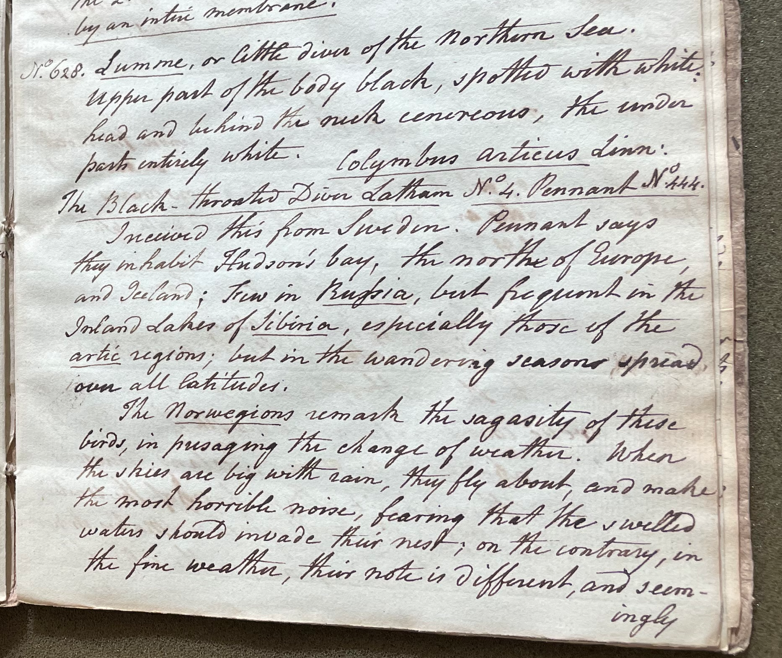 by an intire membrane.
No. 628. Lumme, or little diver of the Northern Sea.
Upper part of the body black, spotted with white:
head and behind the neck cenereous, the under
parts entirely white. Colymbus articus Linn:
The Black-throated Diver Latham No. 4. Pennant No. 444.
I received this from Sweden. Pennant says
they inhabit Hudson's bay, the north of Europe,
and Iceland; Few in Russia, but frequent in the
Inland Lakes of Sibiria, especially those of the
artic regions; but in the wandering seasons spread
over all latitudes.
The Norwegions remark the sagasity of these
birds, in presaging the change of weather. When
the skies are big with rain, they fly about, and make
the most horrible noise, fearing that the swelled
waters should invade their nest; on the contrary, in
the fine weather, their note is different, and seem-
ingly